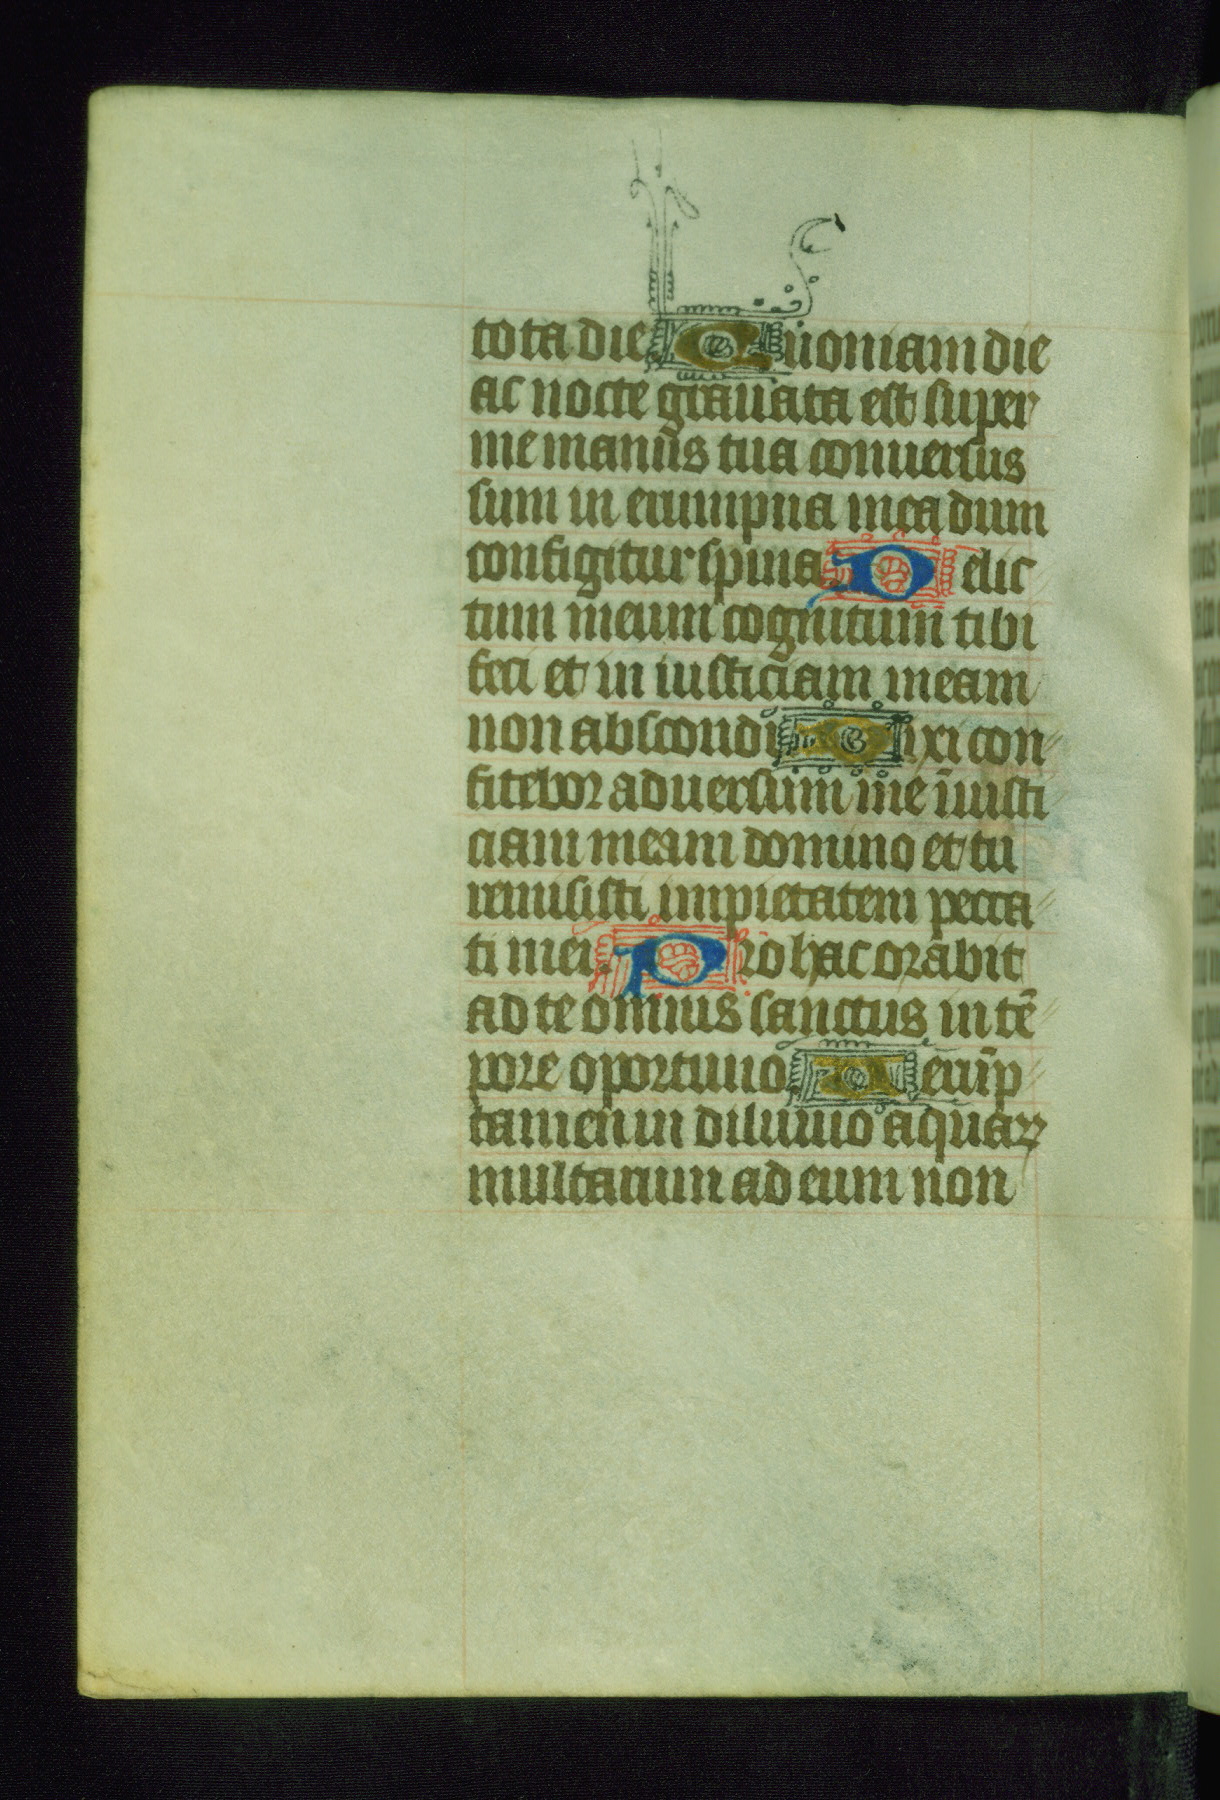 tota die Quoniam die
ac nocte grauata est super
me manus tua conuersus
sum in erumpna mea dum
configitur spina. Delic
tum meum cognitum tibi
feci et in iusticiam meam
non abscondi Dixi con
fitebor aduersum me iniusti
ciam meam domino et tu
remisisti impietatem pecca
ti mei. Pro hac orabit
ad te omnis sanctus in tē
pore oportuno. Uerūp
tamen in diluuio aquaꝝ
multarum ad eum non